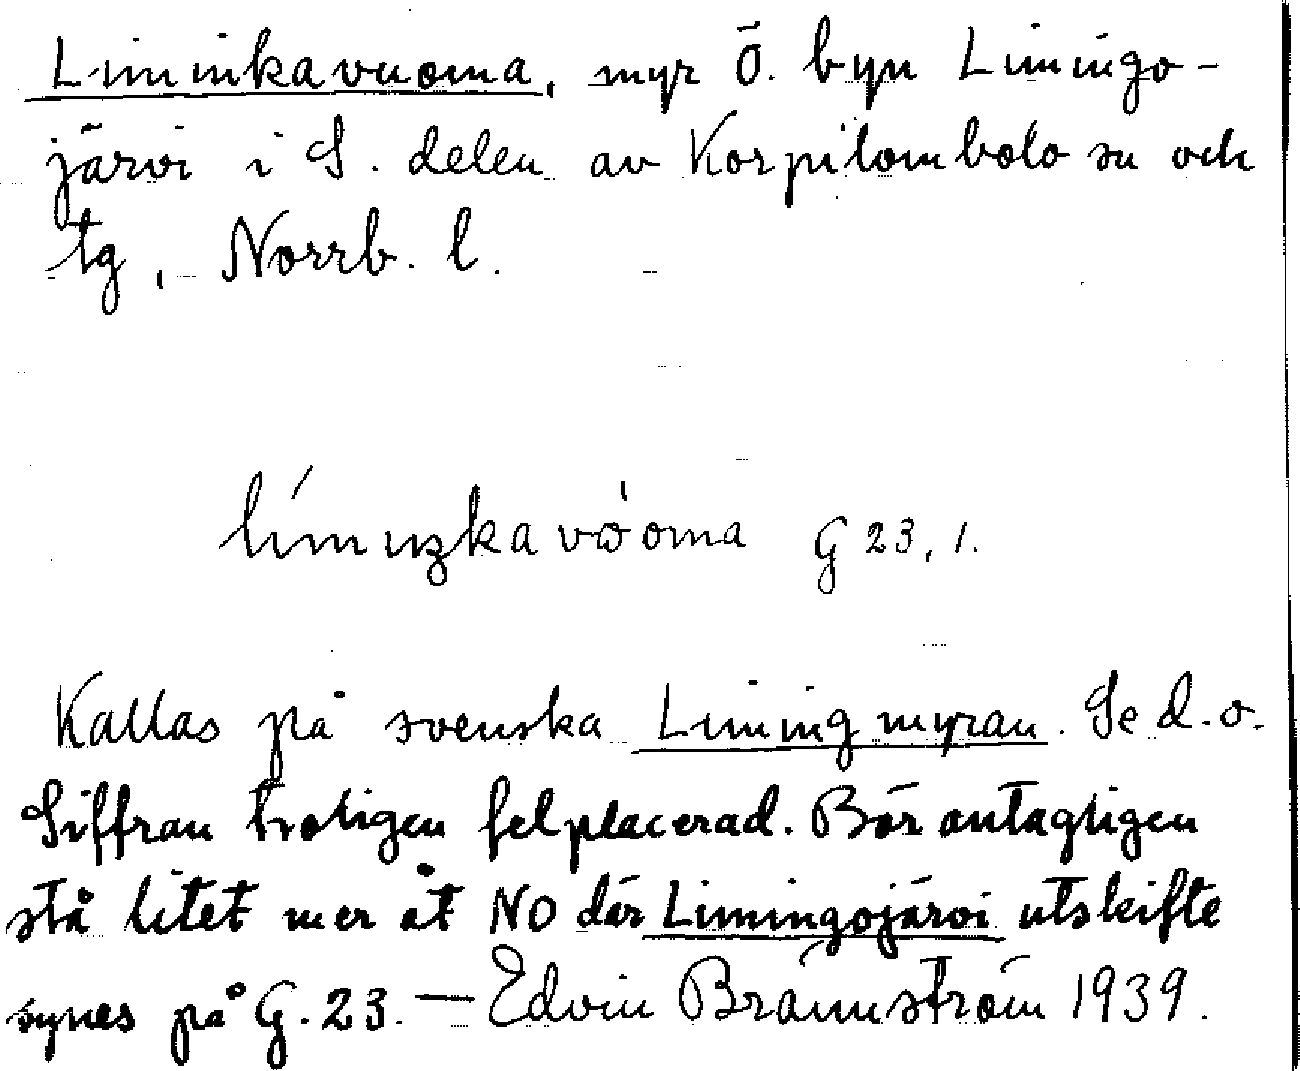 Liminikavuoma, myr Ö. byn Limingo-
järvi i S. delen av Korpilombolo sn och
tg, Norrb. l.
G 23, 1.
Kallas på svenska Limingmyran. Se d. o.
Siffran troligen felplacerad. Bör antagligen
stå litet mer åt NO där Limingojärvi utskifte
synes på G. 23. — Edvin Brännström 1939.